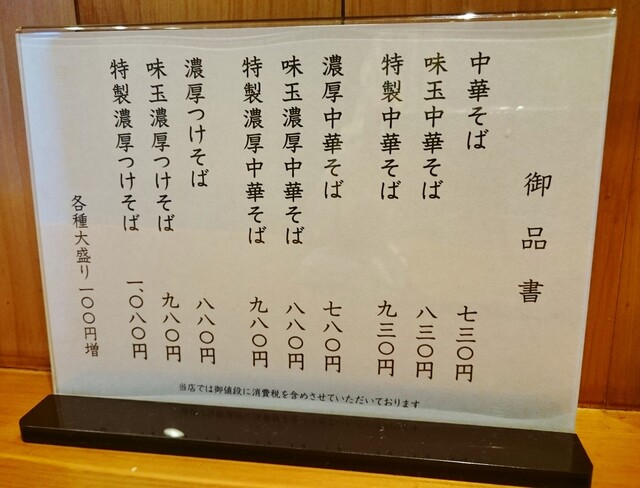 御品書
中華そば 七三〇円
味玉中華そば 八三〇円
特製中華そば 九三〇円
濃厚中華そば 七八〇円
味玉濃厚中華そば 八八〇円
特製濃厚中華そば 九八〇円
濃厚つけそば 八八〇円
味玉濃厚つけそば 九八〇円
特製濃厚つけそば 一、〇八〇円
各種大盛り一〇〇円増
当店では御値段に消費税を含めさせていただいております